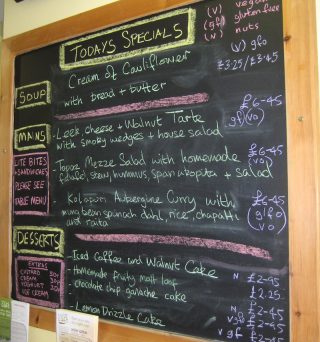 TODAYS SPECIALS
(v) vegan
(gf) gluten free
(n) nuts
SOUP
Cream of Cauliflower
with bread + butter
(v) gfo
£3.25/£3.45
MAINS
- Leek cheese + Walnut Tarte
with smoky wedges + house salad
£6-45
gf (vo)
LITE BITES
+ SANDWICHES
PLEASE SEE
TABLE MENU
- Topaz Mezze Salad with homemade
falafel, stew, hummus, spanakopita + salad
£6-45
(vo)
- Kolapuri Aubergine Curry with
mung bean spinach dahl, rice, chapatti
and raita
£6-45
(gfo)
(vo)
DESSERTS
EXTRAS
CUSTARD 50p
CREAM 30p
YOGHURT 30p
ICE CREAM
- Iced Coffee and Walnut Cake
N £2-95
- Homemade fruity malt loaf
£2.25
- chocolate chip ganache cake
- Lemon Drizzle Cake